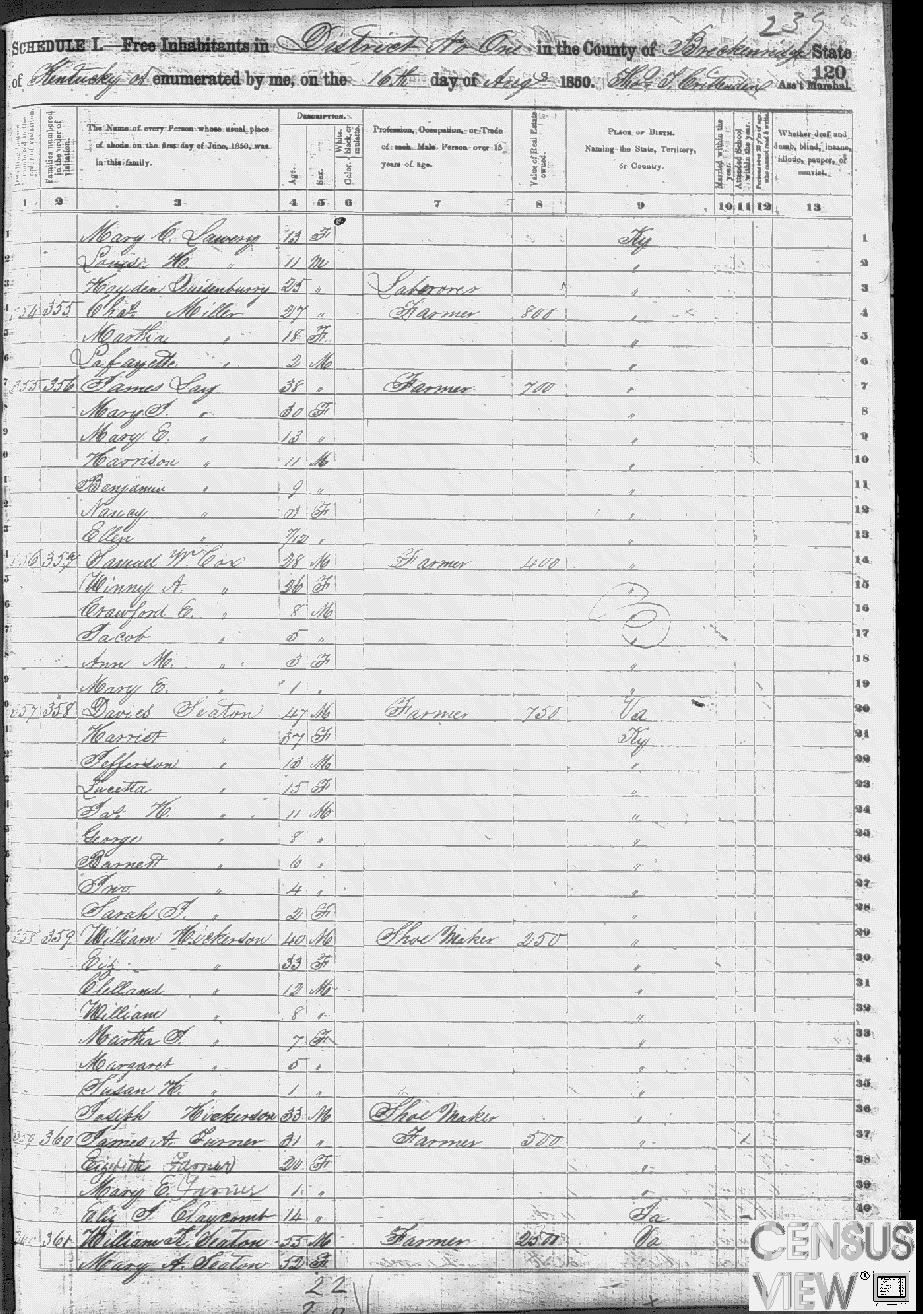 239
SCHEDULE I.—Free Inhabitants in District No One in the County of Breckenridge State
of Kentucky enumerated by me, on the 16th day of Aug 1850. Thos T. Crittenden Ass't Marshal.
120
The Name of every Person whose usual place of abode on the first day of June, 1850, was in this family.
DESCRIPTION.
Age. Sex. Color, White, black, or mulatto.
Profession, Occupation, or Trade of each Male Person over 15 years of age.
Value of Real Estate owned.
PLACE OF BIRTH. Naming the State, Territory, or Country.
Married within the year.
Attended School within the year.
Whether deaf and dumb, blind, insane, idiotic, pauper, or convict.
1 2 3 4 5 6 7 8 9 10 11 12 13
Mary C. Lawery 13 F Ky 1
H. " 11 M " 2
Hayden Quisenburry 25 " Laborer " 3
354 355 Chas Miller 27 " Farmer 800 " 4
Martha " 18 F " 5
Lafayette " 2 M " 6
355 356 James Lay 38 " Farmer 700 " 7
Mary J. " 30 F " 8
Mary E. " 13 " " 9
Harrison " 11 M " 10
Benjamin " 9 " " 11
Nancy " 3 F " 12
Ellen " 7/12 " " 13
356 357 Samuel W Cox 28 M Farmer 400 " 14
Winny A. " 26 F " 15
Crawford E. " 8 M 16
Jacob " 5 " 17
Ann M. " 3 F " 18
Mary E. " 1 " " 19
357 358 Davies Seaton 47 M Farmer 750 Va 20
Harriet " 37 F Ky 21
Jefferson " 13 M " 22
Lucetta " 15 F " 23
Jas H. " 11 M " 24
George " 8 " " 25
Barnett " 6 " " 26
Jno. " 4 " " 27
Sarah J. " 2 F " 28
358 359 William Hickerson 40 M Shoe Maker 250 " 29
Eliz " 33 F " 30
Clelland " 12 M " 31
William " 8 " " 32
Martha J. " 7 F " 33
Margaret " 5 " " 34
Susan H. " 1 " " 35
Joseph Hickerson 33 M Shoe Maker " 36
359 360 James A. Turner 31 " Farmer 500 " 37
20 F " 38
Mary E. 1 " " 39
Claycomb 14 " 40
361 William Seaton 55 M Farmer 2500 Va
Mary A. Seaton 52 F
22
CENSUS
VIEW ®